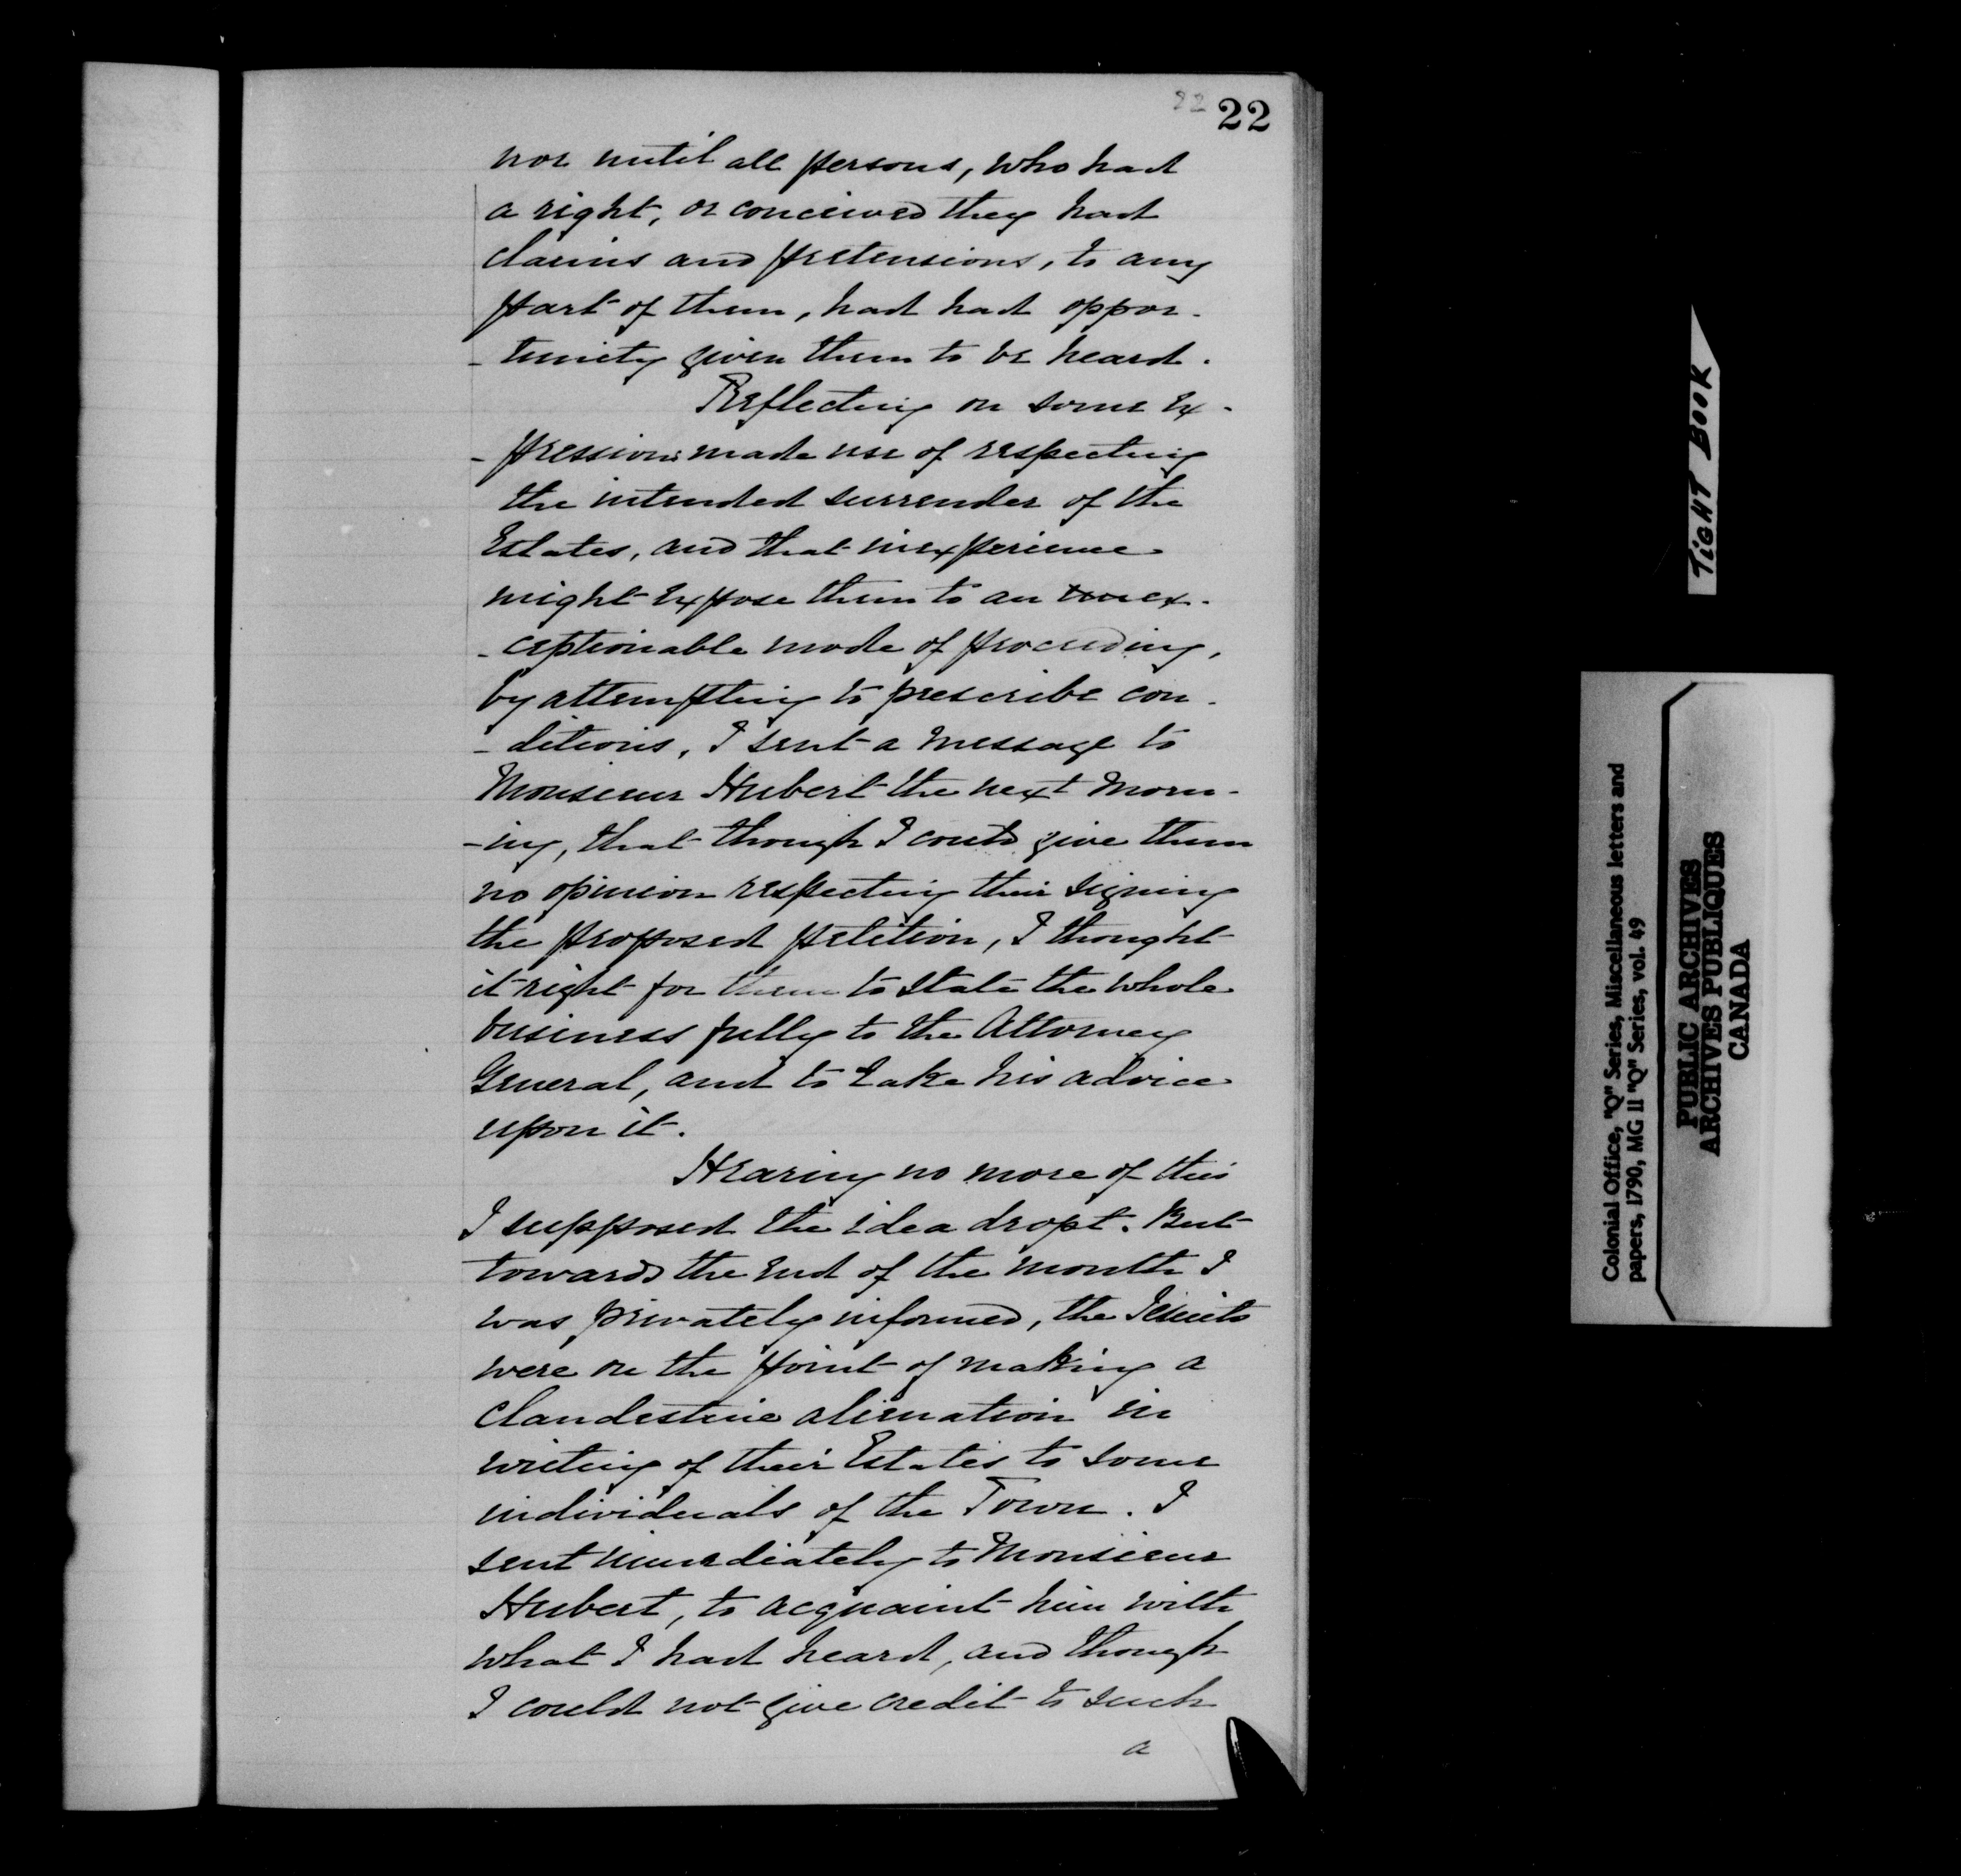 22 22
nor until all persons, who had
a right, or conceived they had
claims and pretensions, to any
part of them, had had oppor-
-tunity given them to be heard.
Reflecting on some ex-
-pressions made use of respecting
the intended surrender of the
Estates, and that inexperience
might expose them to an ex-
-ceptionable mode of proceeding,
by attempting to prescribe con-
-ditions, I sent a message to
Monsieur Hubert the next morn-
-ing, that though I could give them
no opinion respecting their signing
the proposed petition, I thought
it right for them to state the whole
business fully to the Attorney
General, and to take his advice
upon it.
Hearing no more of this
I supposed the idea dropt. But
towards the end of the month I
was privately informed, the Jesuits
were on the point of making a
clandestine alienation in
writing of their Estates to some
individuals of the Town. I
sent immediately to Monsieur
Hubert, to acquaint him with
what I had heard, and though
I could not give credit to such
a
TIGHT BOOK
Colonial Office, "Q" Series, Miscellaneous letters and
papers, 1790, MG 11 "Q" Series, vol. 49
PUBLIC ARCHIVES
ARCHIVES PUBLIQUES
CANADA